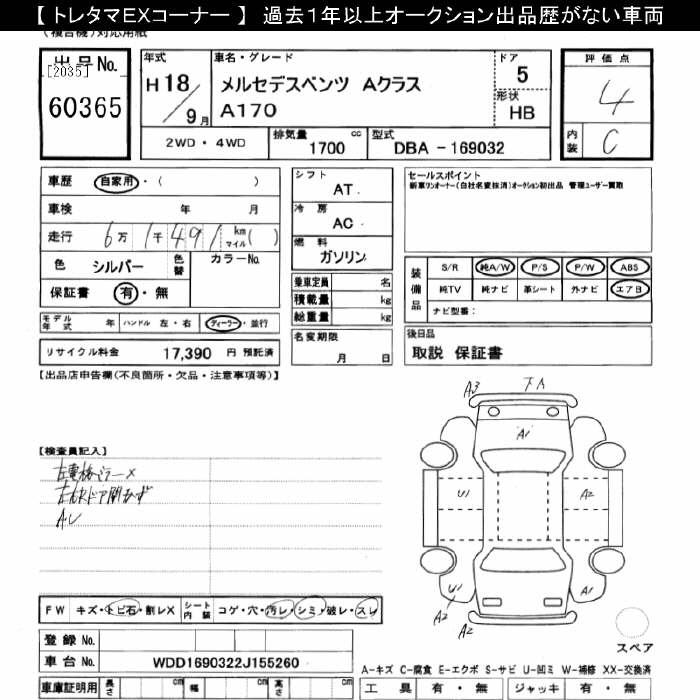 【 トレタマEXコーナー 】 過去1年以上オークション出品歴がない車両
出品No.
[2035]
60365
年式
H18/9月
車名・グレード
メルセデスベンツ Aクラス
A170
ドア
5
形状
HB
評価点
4
内装
C
2WD・4WD
排気量 1700 cc
型式 DBA - 169032
車歴 自家用・( )
車検 年 月
走行 6万1千491 km マイル( )
色 シルバー 色替 カラーNo.
保証書 有・無
シフト AT
冷房 AC
燃料 ガソリン
乗車定員 名
積載量 kg
総重量 kg
名変期限
月 日
セールスポイント
新車ワンオーナー(自社名変抹消)オークション初出品 管理ユーザー買取
装備品
S/R 純A/W P/S P/W ABS
純TV 純ナビ 革シート 外ナビ エアB
ナビ型番:
後日品
取説 保証書
モデル年式 年 ハンドル 左・右 ディーラー・並行
リサイクル料金 17,390 円 預託済
【出品店申告欄(不良箇所・欠品・注意事項等)】
【検査員記入】
A3 下A
A1
U1 A2
U1 A2 A2 A2
FW キズ・トビ石・割レX シート内装 コゲ・穴・汚レ・シミ・破レ・スレ
登録 No.
車台 No. WDD1690322J155260
車庫証明用 長さ cm 幅 cm 高さ cm
スペア
A-キズ C-腐食 E-エクボ S-サビ U-凹ミ W-補修 XX-交換済
工具 有・無 ジャッキ 有・無